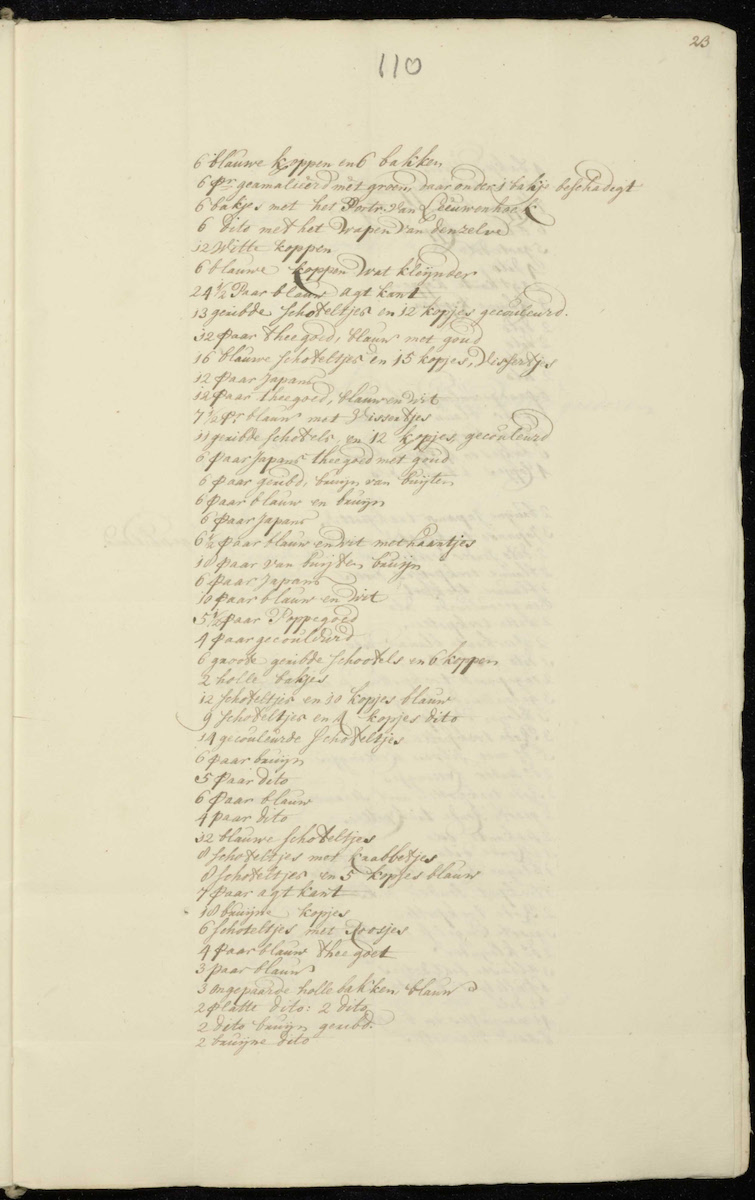 23
110
6 blauwe koppen en 6 bakken
6 Pr geamalieerd met groen, daar onder 1 bakje beschadigt
6 bakjes met het Portr. van Leeuwenhoek
6 dito met het Wapen van denzelve
12 Witte koppen
6 blauwe koppen wat kleijnder
24 1/2 Paar blauw agt kant
13 geribde schoteltjes en 12 kopjes gecouleurd.
32 paar theegoed, blauw met goud
16 blauwe schoteltjes en 15 kopjes, Vissertjes
12 Paar Japans
12 Paar theegoed, blauw en wit
7 1/2 Pr blauw met Vissertjes
11 geribde schotels, en 12 kopjes, gecouleurd
6 Paar Japans theegoed met goud
6 paar geribd, bruijn van buijten
6 Paar blauw en bruijn
6 Paar Japans
6 1/2 Paar blauw en wit met haantjes
10 Paar van buijten bruijn
6 Paar Japans
10 paar blauw en wit
5 1/2 Paar Poppegoed
4 Paar gecouleurd
6 groote geribde schootels en 6 koppen
2 holle bakjes
12 schoteltjes en 10 kopjes blauw
9 schoteltjes en 4 kopjes dito
14 gecouleurde schoteltjes
6 paar bruijn
5 Paar dito
6 Paar blauw
4 paar dito
32 blauwe schoteltjes
8 schoteltjes met krabbetjes
8 schoteltjes en 5 kopjes blauw
7 Paar agt kant
18 bruijne kopjes
6 schoteltjes met Roosjes
4 Paar blauw thee goet
3 paar blauw
3 ongepaarde holle bakken blauw
2 platte dito: 2 dito
2 dito bruijn geribd.
2 bruijne dito